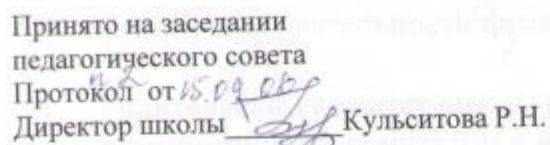 Принято на заседании
педагогического совета
Протокол №2 от 15.09.
Директор школы Кульситова Р.Н.